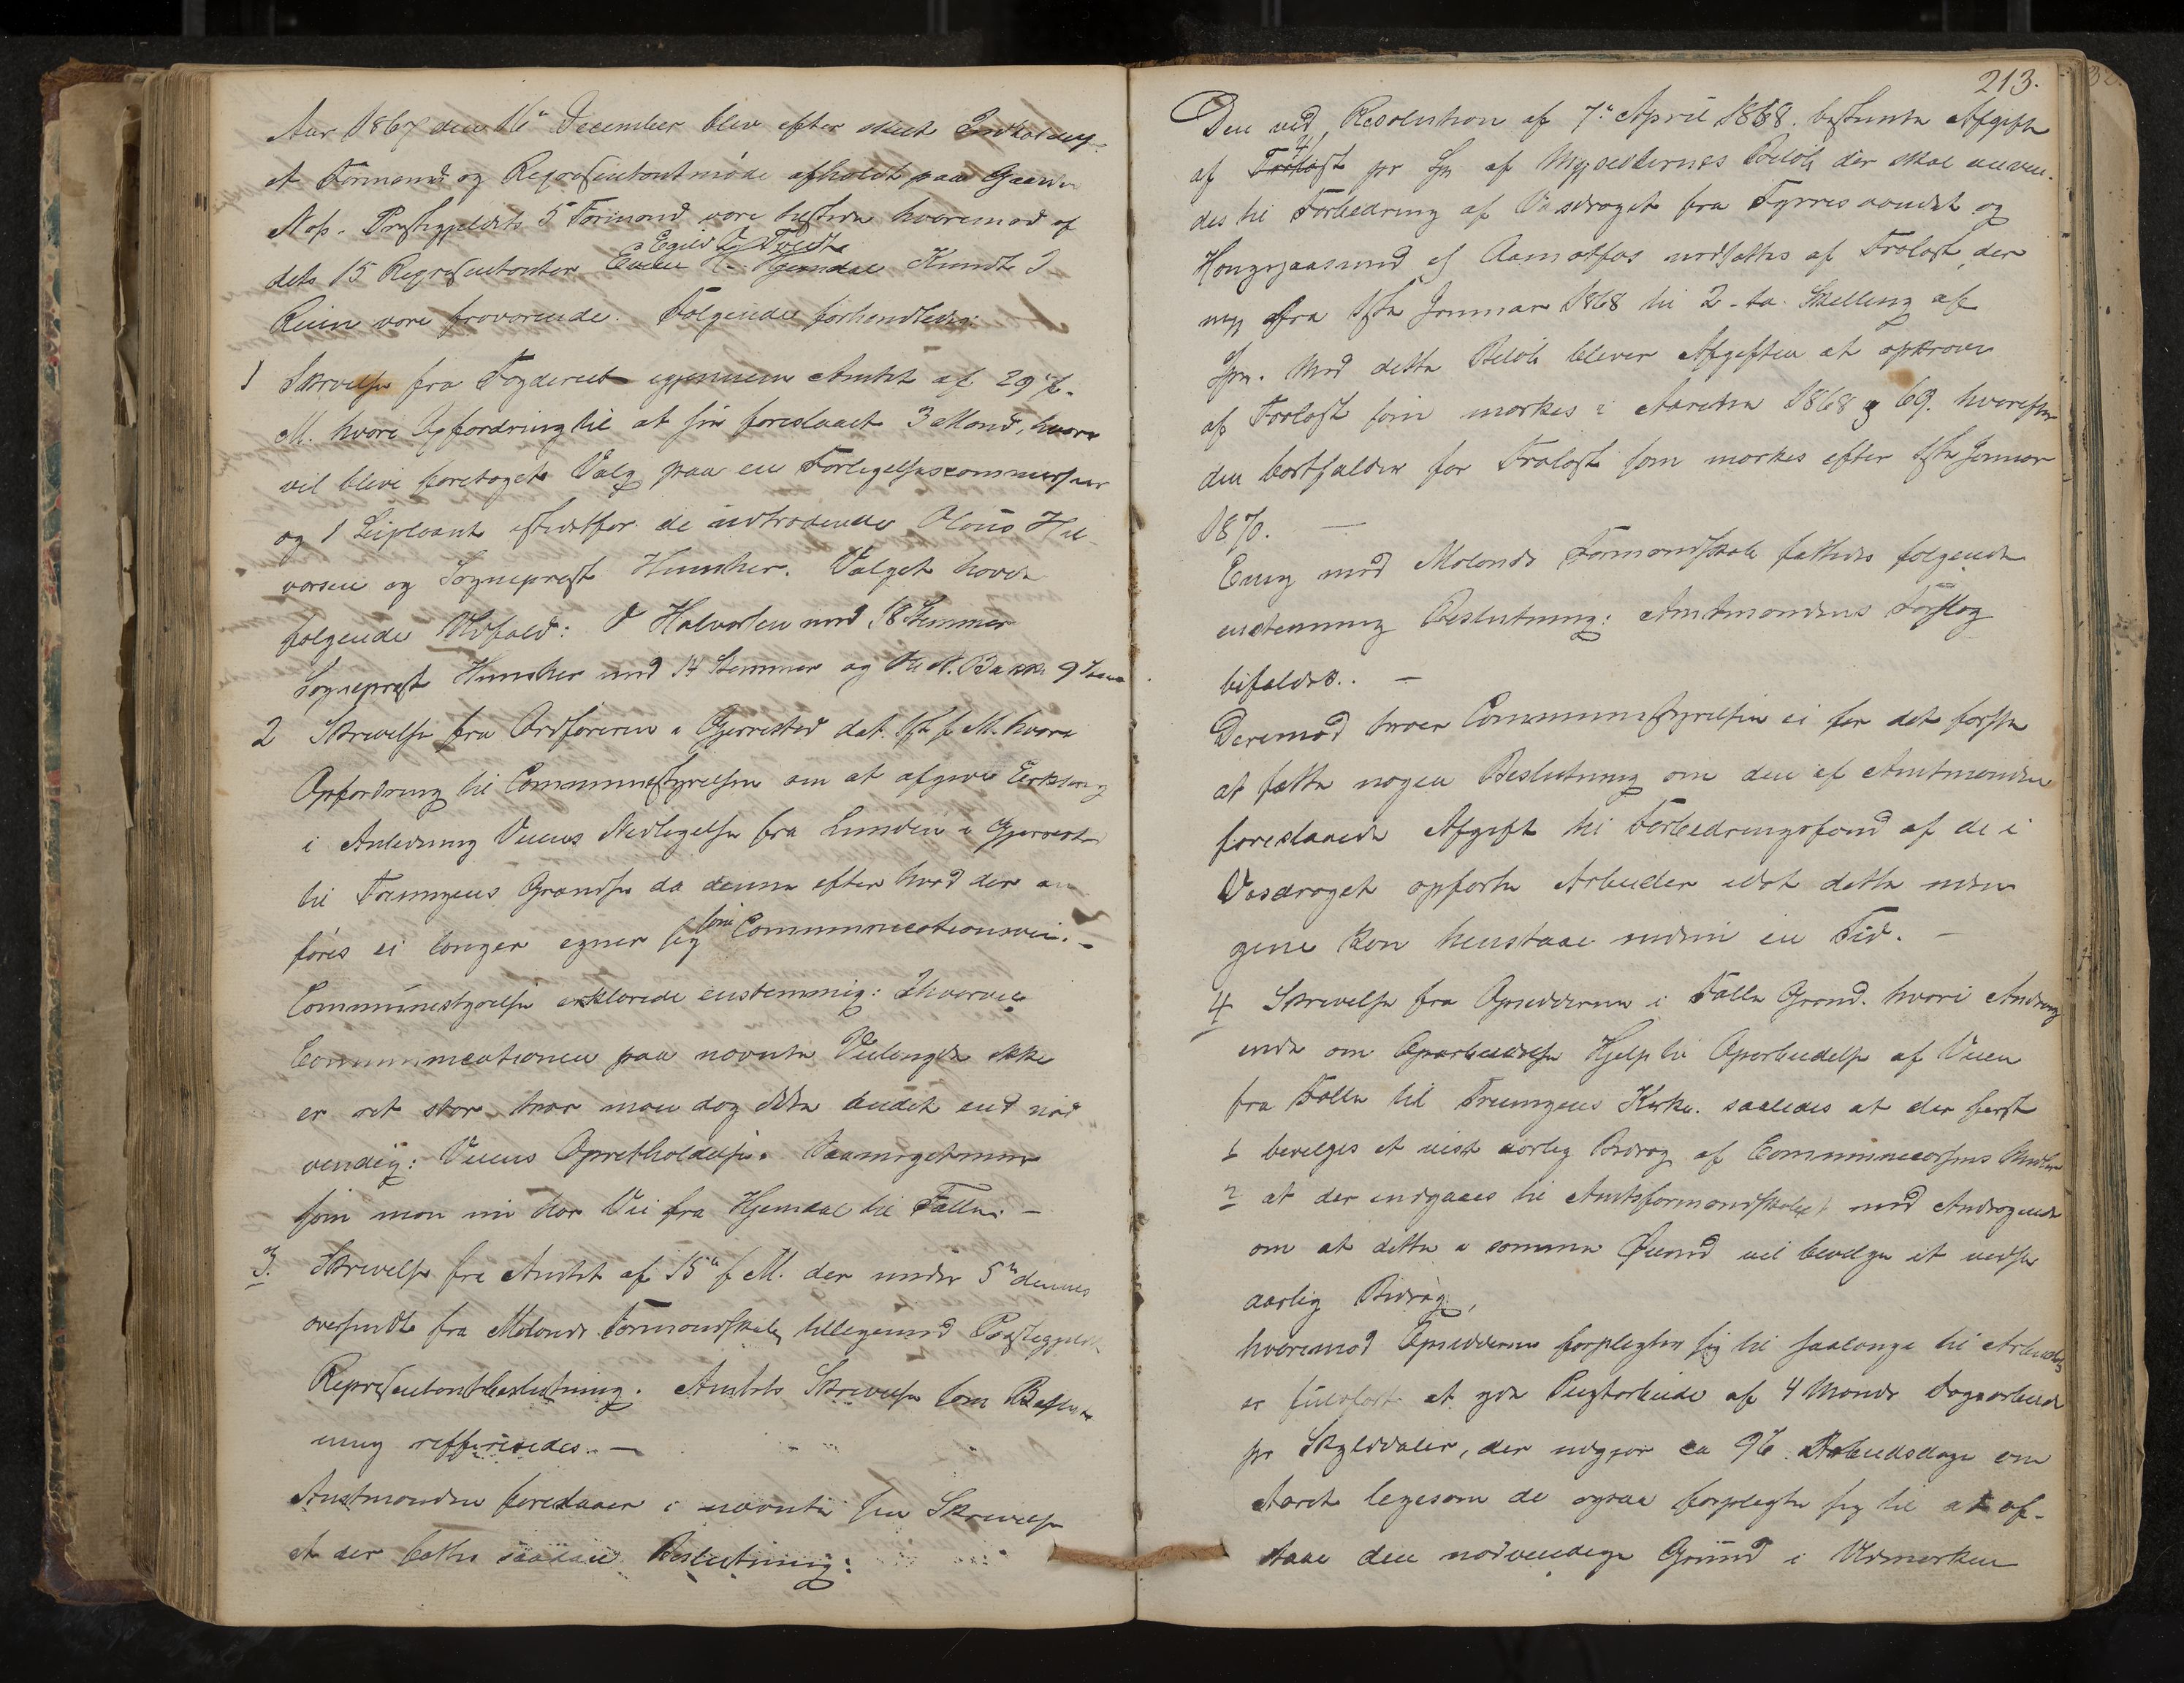 Aar 1867 den 16de December blev efter skeet Indkaldelse
et Formands og Repræsentantmøde afholdt paa Gaarden
Næs. Præstegjeldets 5 Formænd vare tilstede hvorimod af
Egild J Tveit
dets 15 Repræsentanter Even H. Hjemdal Knudt J
Reiin vare fraværende. Følgende forhandledes:
1 Skrivelse fra Fogderiet igjennem Amtet af 29 f.
M. hvori Opfordring til at faae foreslaaet 3 Mænd, hvoraf
vil blive foretaget Valg paa en Forligelsescommissær
og 1 Supleant istedetfor de udtrædende Oloûs Hal-
vorsen og Sogneprest Hunsher. Valget havde
følgende Udfald: O Halvorsen med 18 Stemmer
Sogneprest Hunsher med 14 Stemmer og N. Bakke 9 Stem
2 Skrivelse fra Ordføreren i Gjerrestad dat. f. M. hvori
Opfordring til Communestyrelsen om at afgive Erklæring
i Anledning Veiens Nedlæggelse fra Lunden i Gjerrestad
til Treungens Grændse da denne efter hvad der an
føres ei længer egner sig som Communicationsvei. -
Communestyrelsen erklærede eenstemmig: Ihvorvel
Communicationen paa nævnte Veilengde ikke
er ret stor, troer man dog ikke andet end nød
vendig: Veiens Opretholdelse. Saameget mere
som man nu har Vei fra Hjemdal til Falle. -
3. Skrivelse fra Amtet af 15de f. M. der under 5te dennes
oversendt fra Molands Formandskab tilligemed Prestegjeldets
Repræsentantbeslutning. Amtets Skrivelse som Beslut
ning refereredes. -
Amtmanden foreslaaer i nævnte sin Skrivelse
at der fattes saadan Beslutning:
213.
Den ved Resolution af 7de April 1868 bestemte Afgift
af Trælast pr af Myndlernes Beløb der skal anven-
des til Forbedring af Vasdraget fra Fyrresvandet og
Haugsjaasund af Aamotfos nedsættes af Trælast, der
fra 1ste Januar 1868 til 2 - to Skilling af
Med dette Beløb bliver Afgiften at opkræve
af Trælast som mærkes i Aarene 1868 og 69. hvorefter
den bortfalder for Trælast som mærkes efter 1ste Januar
1870. -
Enig med Molands Formandskab fattedes følgende
enstemmig Beslutning: Amtmandens Forslag
bifaldes. -
Derimod troer Communestyrelsen ei for det første
at fatte nogen Beslutning om den af Amtmanden
foreslaaede Afgift til Forbedringsfond af de i
Vasdraget opførte Arbeider idet dette
kan henstaae endnu en Tid. -
4 Skrivelse fra Opsidderne i Falle Grend. hvori Andrag
ende om Oparbeidelse Hjelp til Oparbeidelse af Veien
fra Falle til Treungens Kirke. saaledes at der først
1 bevilges et vist aarlig Bidrag af Communecassens Midler
2 at der indgaaes til Amtsformandskabet med Andragende
om at dette i samme Øiemed vil bevilge et vidst
aarlig Bidrag,
hvorimod Opsidderne forpligter sig til saalænge til Arbeidet
er fuldført at yde Pligtarbeide af 4 Mands Dagsarbeide
pr Skylddaler, der udgjør ca 96 Arbeidsdage om
Aaret ligesom de ogsaa forpligter sig til at af-
staae den nødvendige Grund i Udmarken